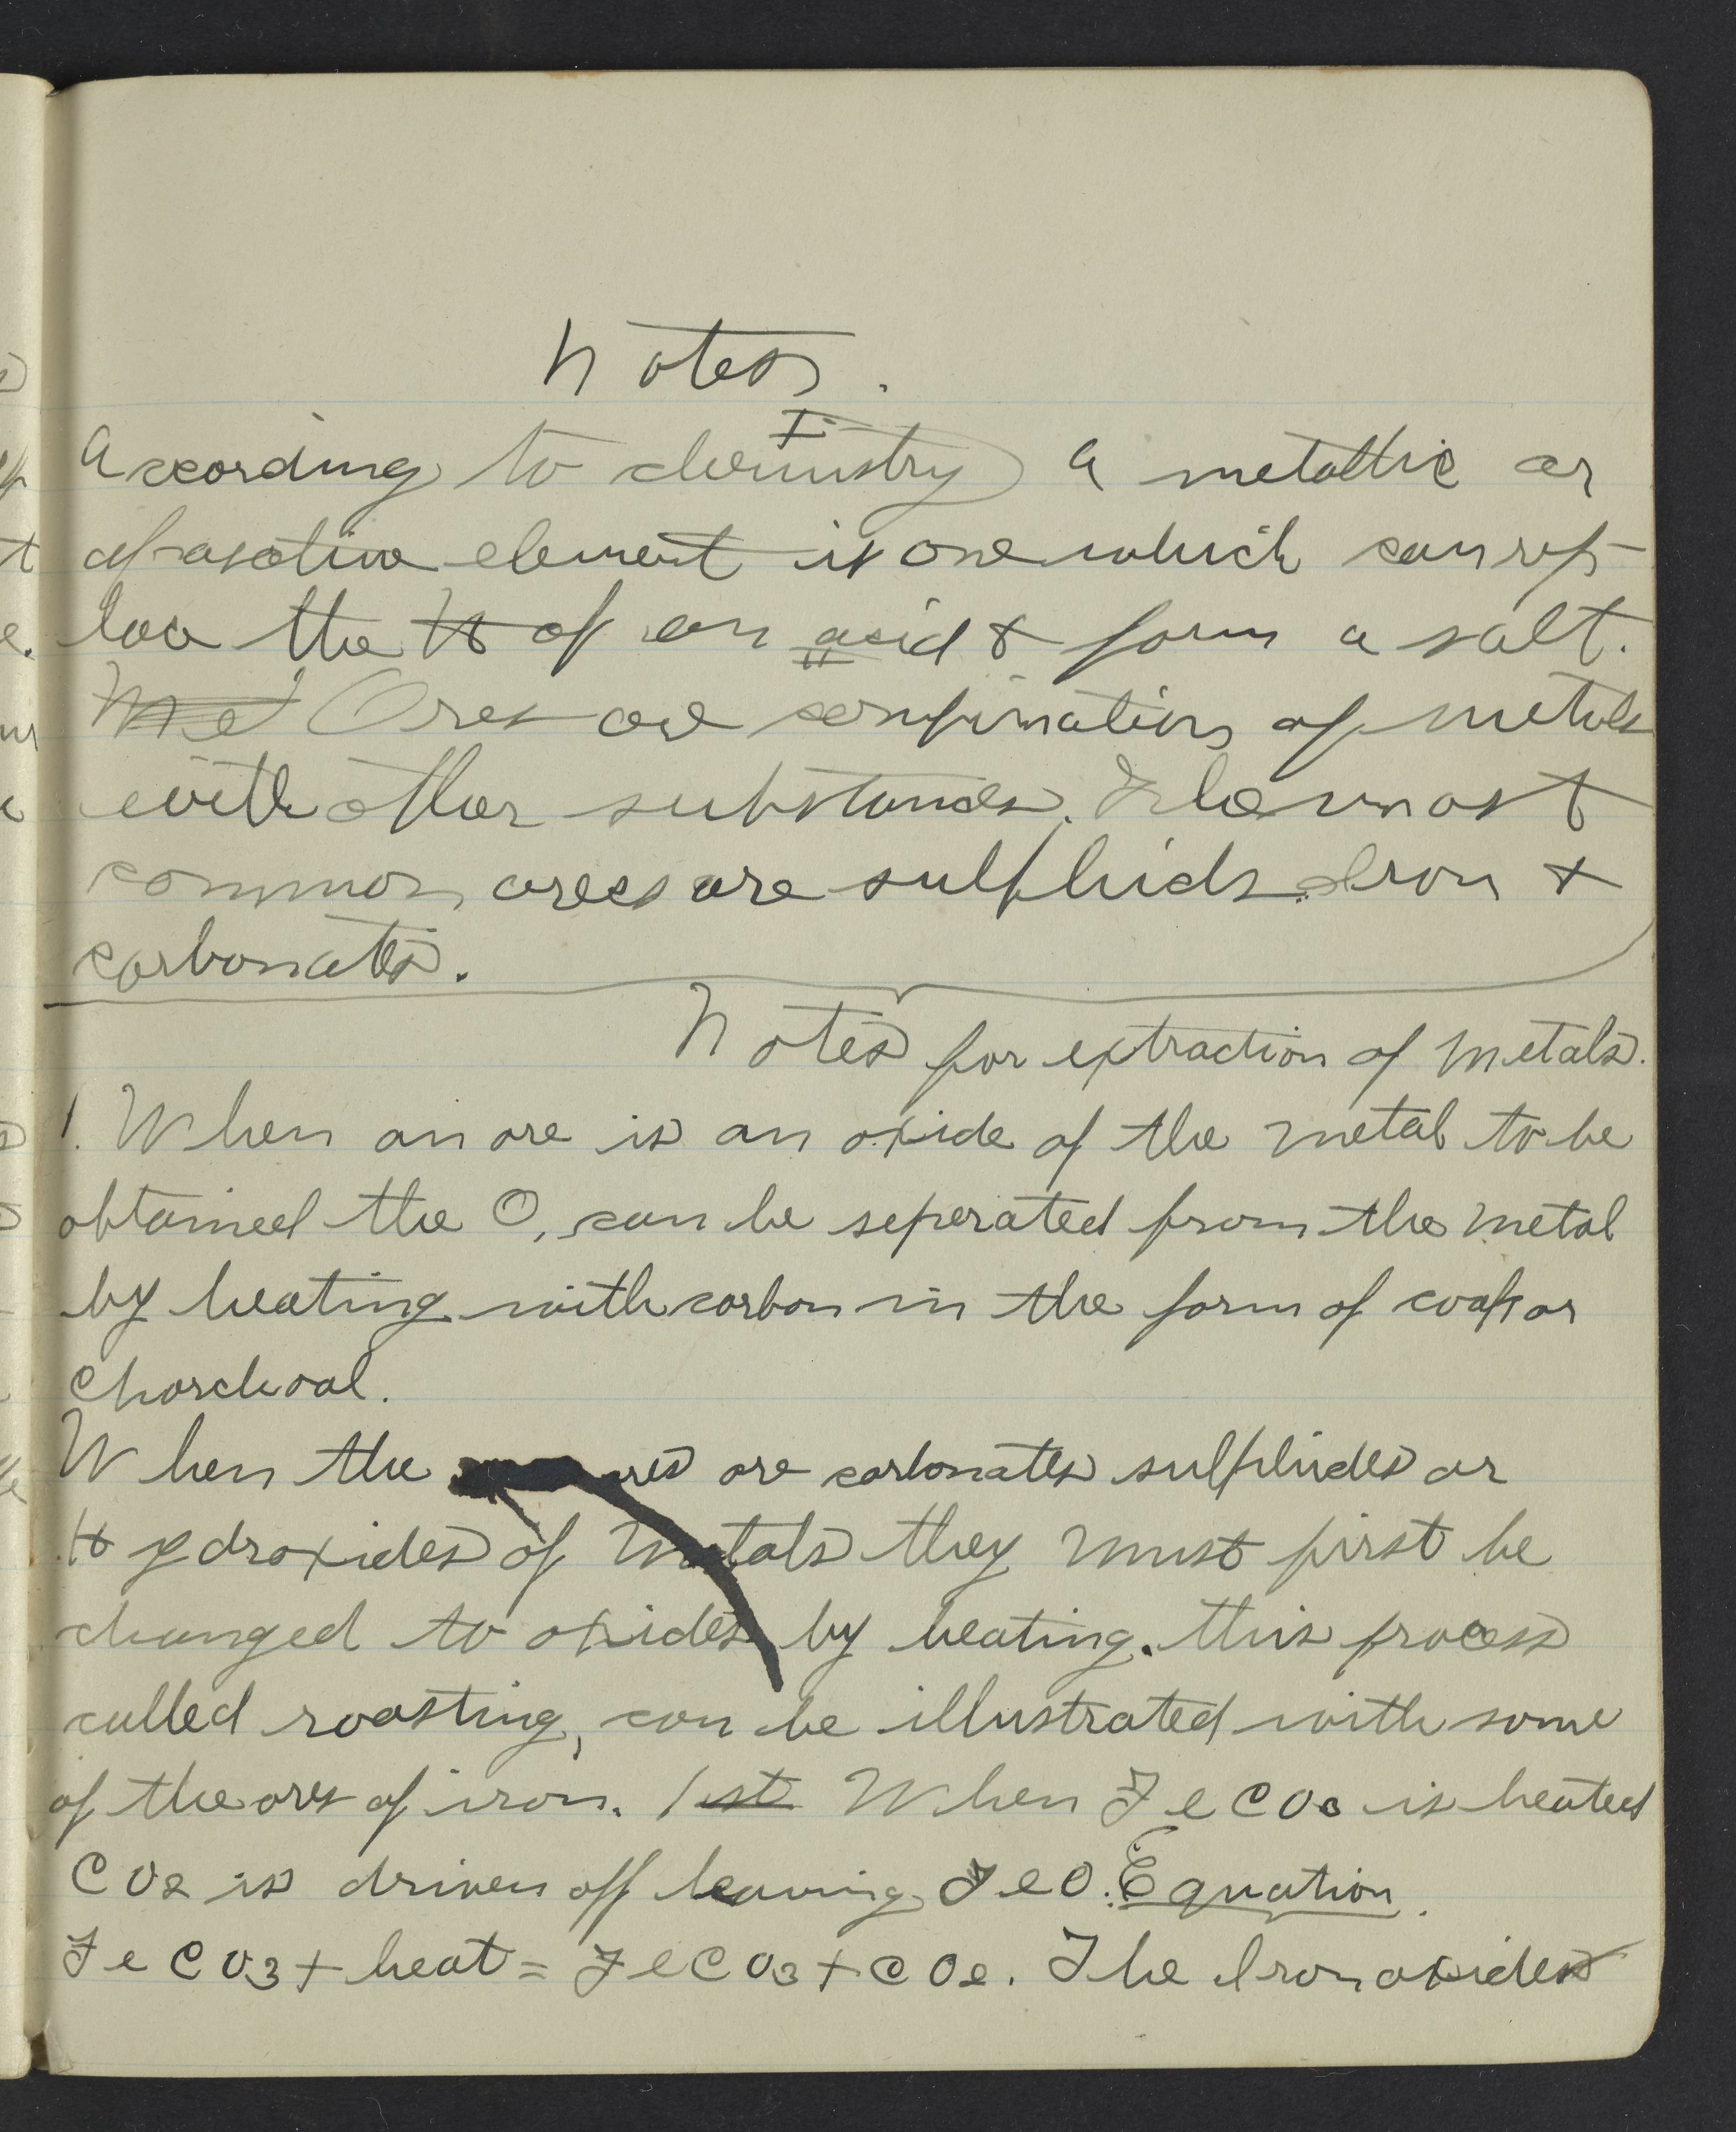 Notes.
I.
According to chemistry a metallic or
of basative element is one which can rep-
lace the H of an acid & form a salt.
Met Ores are combinations of metals
with other substances. The most
common ores are sulphids Iron &
carbonates.
Notes for extraction of metals.
1. When an ore is an oxide of the metal to be
obtained the O, can be seperated from the metal
by heating with carbon in the form of coak or
Charchoal.
When the ores are carbonates sulphides or
Hydroxides of metals they must first be
changed to oxides by heating. this process
called roasting, can be illustrated with some
of the ores of iron. 1st When FeCO3 is heated
CO2 is driven off leaving FeO. Equation.
FeCO3 + heat = FeCO3 + CO2. The Iron oxides